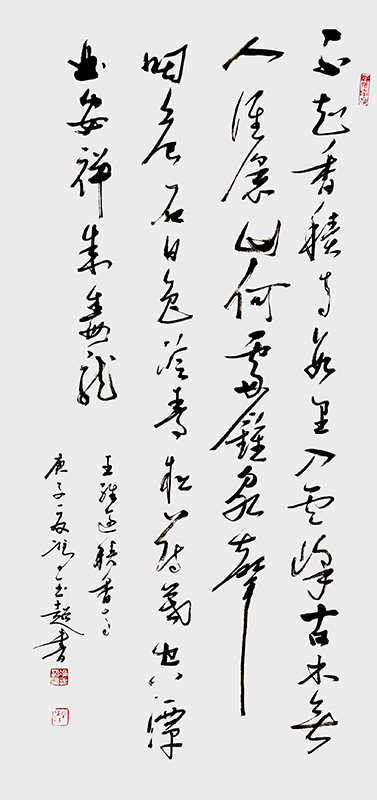 不知香積寺數里入云峰古木無
人徑深山何處鐘泉聲
咽危石日色冷青松薄暮空潭
曲安禅制毒龍
王維過積香寺
庚子夏玉超書